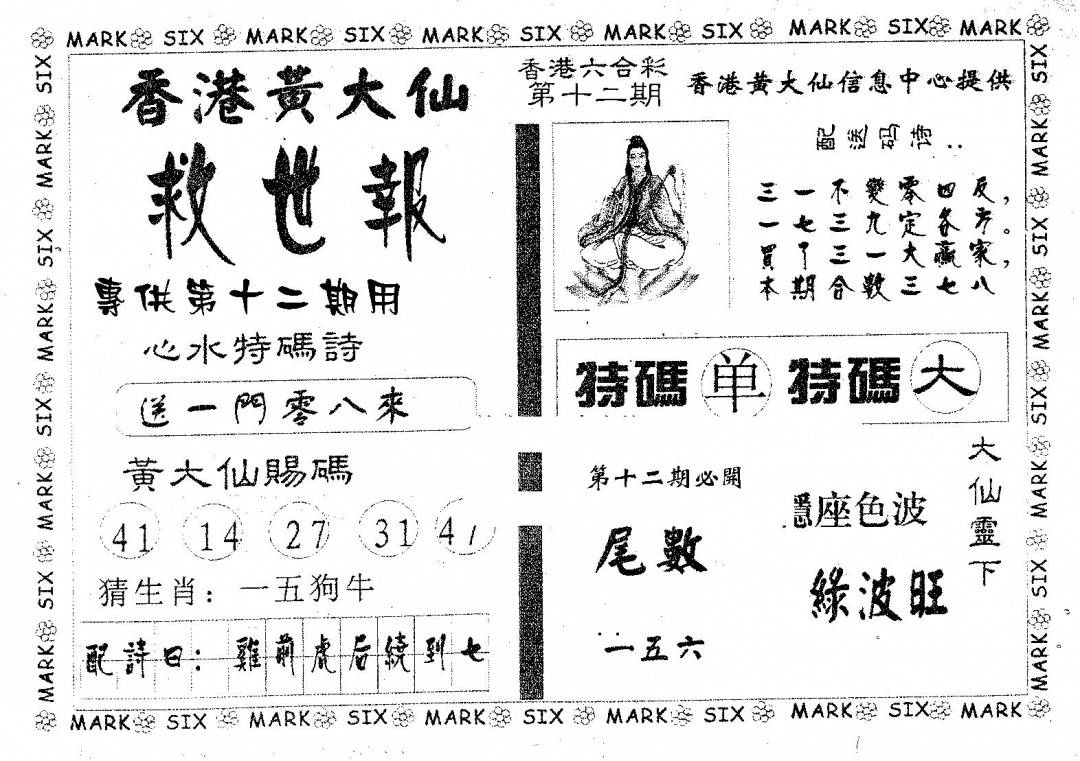 MARK SIX MARK SIX MARK SIX MARK SIX MARK SIX MARK
香港黃大仙
救世報
專供第十二期用
心水特碼詩
送一門零八來
黃大仙賜碼
41 14 27 31
猜生肖：一五狗牛
配詩曰：雞前虎后繞到七
香港六合彩
第十二期
香港黃大仙信息中心提供
配送码诗：
三一不變零四反，
一七三九定各方。
買了三一大贏家，
本期合數三七八
特碼 单 特碼 大
第十二期必開
尾數
一五六
座色波
綠波旺
大仙靈下
SIX MARK SIX MARK SIX MARK SIX MARK
SIX MARK SIX MARK SIX MARK SIX MARK
MARK SIX MARK SIX MARK SIX MARK SIX MARK SIX MARK